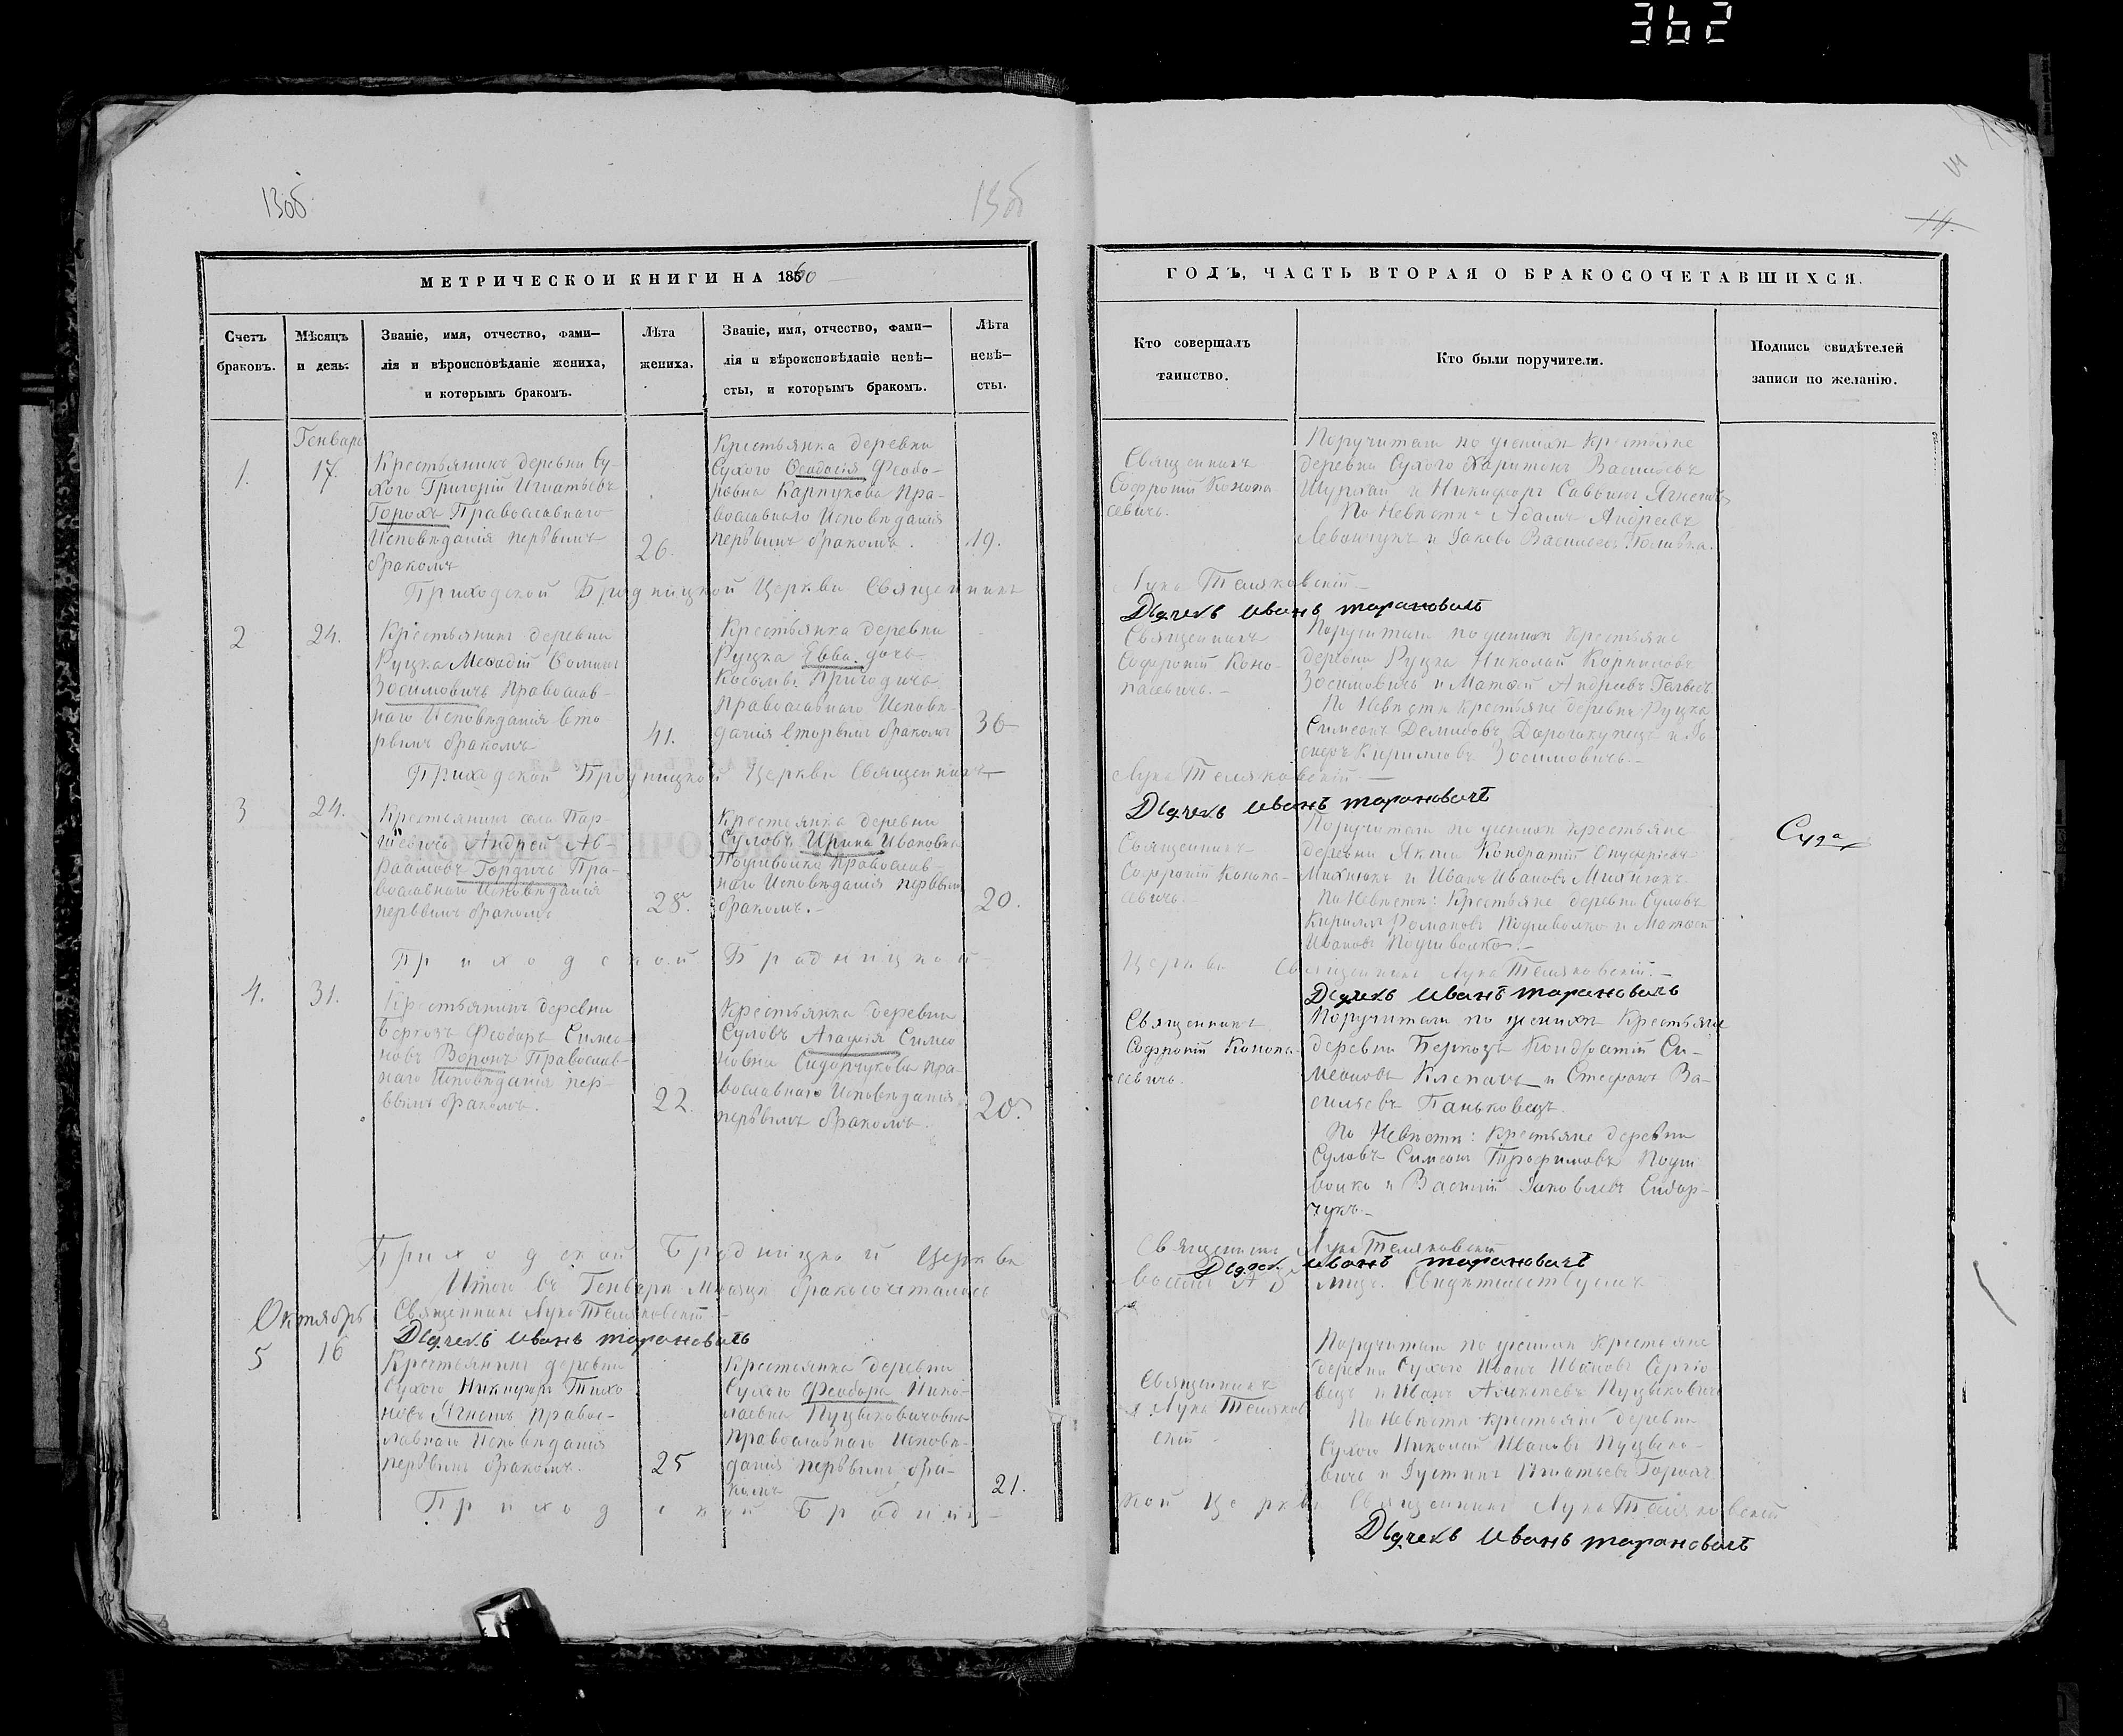 362
130б
13об
14.
МЕТРИЧЕСКОЙ КНИГИ НА 1860
Счетъ браковъ.
Мѣсяцъ и день.
Званіе, имя, отчество, фами-
лія и вѣроисповѣданіе жениха,
и которымъ бракомъ.
Лѣта
жениха.
Званіе, имя, отчество, фами-
лія и вѣроисповѣданіе невѣ-
сты, и которымъ бракомъ.
Лѣта
невѣ-
сты.
ГОДЪ, ЧАСТЬ ВТОРАЯ О БРАКОСОЧЕТАВШИХСЯ.
Кто совершалъ
таинство.
Кто были поручители.
Подпись свидѣтелей
записи по желанію.
Генварь
1.
17.
Крестьянинъ деревни Су-
хого Григорій Игнатьевъ
Горохъ Православнаго
Исповѣданія первымъ
бракомъ
26.
Крестьянка деревни
Сухого Ѳеодосія Феодо-
ровна Карпукова Пра-
вославнаго Исповѣданія
первымъ бракомъ.
19.
Священникъ
Софроній Конопа-
севичъ.
Поручители по женихѣ Крестьяне
деревни Сухого Харитонъ Васильевъ
и Никифоръ Саввинъ Ягнешъ
По Невѣстѣ Адамъ Андреевъ
Левончукъ и Іаковъ Васильевъ
Приходской Бродницкой Церкви Священникъ
Лука Теляковскій
Дьячекъ Иванъ Тарановичъ
2
24.
Крестьянинъ деревни
Ручка Меѳодій Ѳоминъ
Зосимовичъ Православ-
наго Исповѣданія вто-
рымъ бракомъ
41.
Крестьянка деревни
Ручка Евва дочь
Косьмы Пригодичъ
Православнаго Исповѣ-
данія вторымъ бракомъ
36
Священникъ
Софроній Коно-
пасевичъ.
Поручители по женихѣ Крестьяне
деревни Ручка Николай Корниловъ
Зосимовичъ и Матѳей Андреевъ
По Невѣстѣ Крестьяне деревни Ручка
Симеонъ Демидовъ Дорогокупецъ и
Кириловъ Зосимовичъ.
Приходской Бродницкой Церкви Священникъ
Лука Теляковскій
Дьячекъ Иванъ Тарановичъ
3
24.
Крестьянинъ села Пар-
шевичъ Андрей Ав-
раамовъ Гордичъ Пра-
вославнаго Исповѣданія
первымъ бракомъ
28.
Крестьянка деревни
Суловъ Ирина Ивановна
Подшивайка Православ-
наго Исповѣданія первымъ
бракомъ.
20.
Священникъ
Софроній Конопа-
севичъ.
Поручители по женихѣ Крестьяне
деревни Якши Кондратій Онуфріевъ
Михнюкъ и Иванъ Ивановъ Михнюкъ
По Невѣстѣ: Крестьяне деревни Суловъ
Кириллъ Романовъ Подшивалко и Матѳей
Ивановъ Подшивалко.
Приходской Бродницкой
Церкви Священникъ Лука Теляковскій.
Дьячекъ Иванъ Тарановичъ
4.
31.
Крестьянинъ деревни
Беркозъ Феодоръ Симео-
новъ Воронъ Православ-
наго Исповѣданія пер-
вымъ бракомъ.
22.
Крестьянка деревни
Суловъ Агафія Симео-
новна Сидорчукова Пра-
вославнаго Исповѣданія
первымъ бракомъ.
20.
Священникъ
Софроній Конопа-
севичъ.
Поручители по женихѣ Крестьяне
деревни Беркозъ Кондратій Си-
меоновъ Клепачъ и Стефанъ Ва-
сильевъ Паньковецъ.
По Невѣстѣ: Крестьяне деревни
Суловъ Симеонъ Трофимовъ Подши-
валко и Василій Іаковлевъ Сидор-
чукъ.
Приходской Бродницкой Церкви
Священникъ Лука Теляковскій
Дьячекъ Иванъ Тарановичъ
Итого въ Генварѣ Мѣсяцѣ бракосочеталось
восемь лицъ. Свидѣтельствуемъ
Священникъ Лука Теляковскій
Дьячекъ Иванъ Тарановичъ
Октябрь
5
16
Крестьянинъ деревни
Сухого Никифоръ Тихо-
новъ Ягнешъ Правос-
лавнаго Исповѣданія
первымъ бракомъ.
25
Крестьянка деревни
Сухого Феодора Нико-
лаевна Пуцыковичовна
Православнаго Исповѣ-
данія первымъ бра-
комъ
21.
Священникъ
Лука Теляков-
скій
Поручители по женихѣ Крестьяне
деревни Сухого Иванъ Ивановъ Сергіо-
вецъ и Иванъ Алексѣевъ Пуцыковичъ
По Невѣстѣ Крестьяне деревни
Сухого Николай Ивановъ Пуцыко-
вичъ и Іустинъ Игнатьевъ Горохъ
Приходской Бродниц-
кой Церкви Священникъ Лука Теляковскій
Дьячекъ Иванъ Тарановичъ